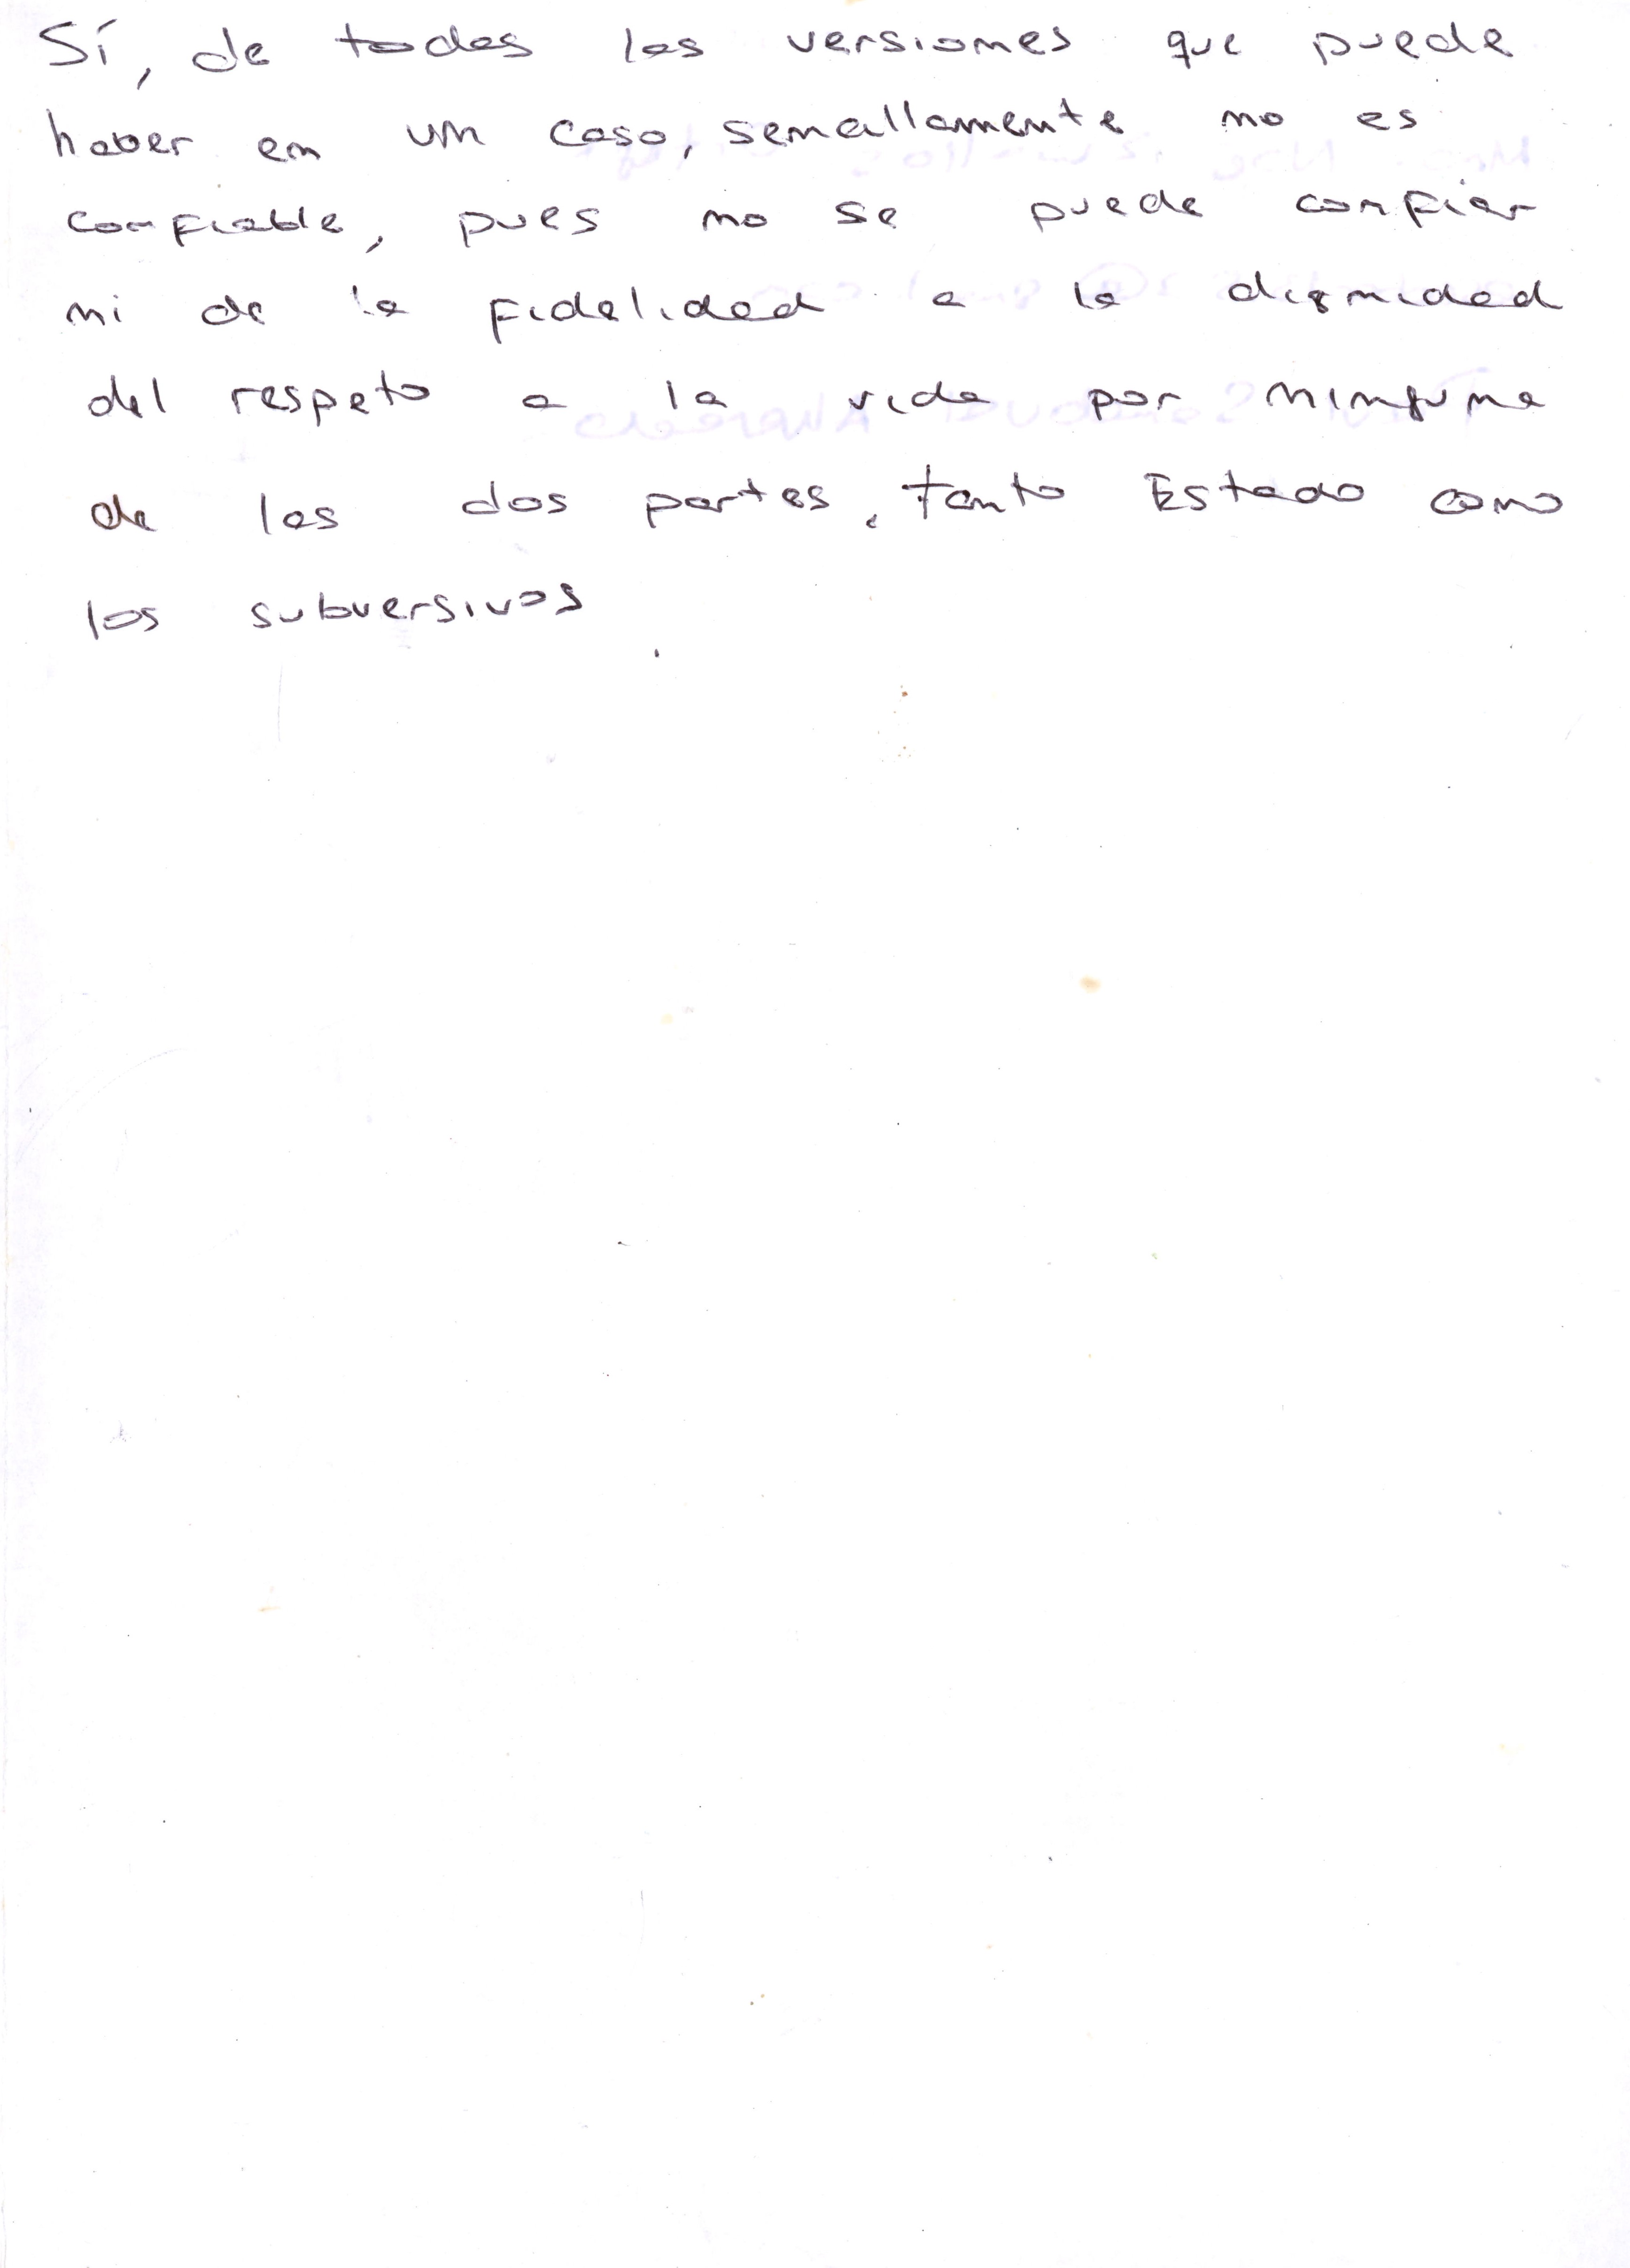 Sí, de todas las versiones que puede
haber en un caso, sencillamente no es
confiable, pues no se puede confiar
ni de la fidelidad a la dignidad
del respeto a la vida por ninguna
de las dos partes, tanto Estado como
los subversivos.